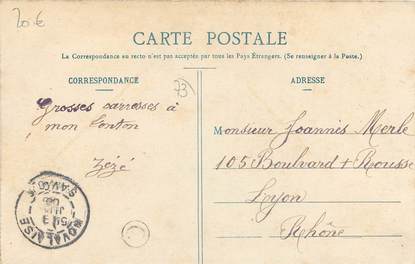 20 €
CARTE POSTALE
La Correspondance au recto n'est pas acceptée par tous les Pays Étrangers. (Se renseigner à la Poste.)
CORRESPONDANCE
ADRESSE
73
Grosses carresses à
mon Tonton
Zézé
Monsieur Joannis Merle
105 Boulvard + Rousse
Lyon
Rhône
NOVALAISE